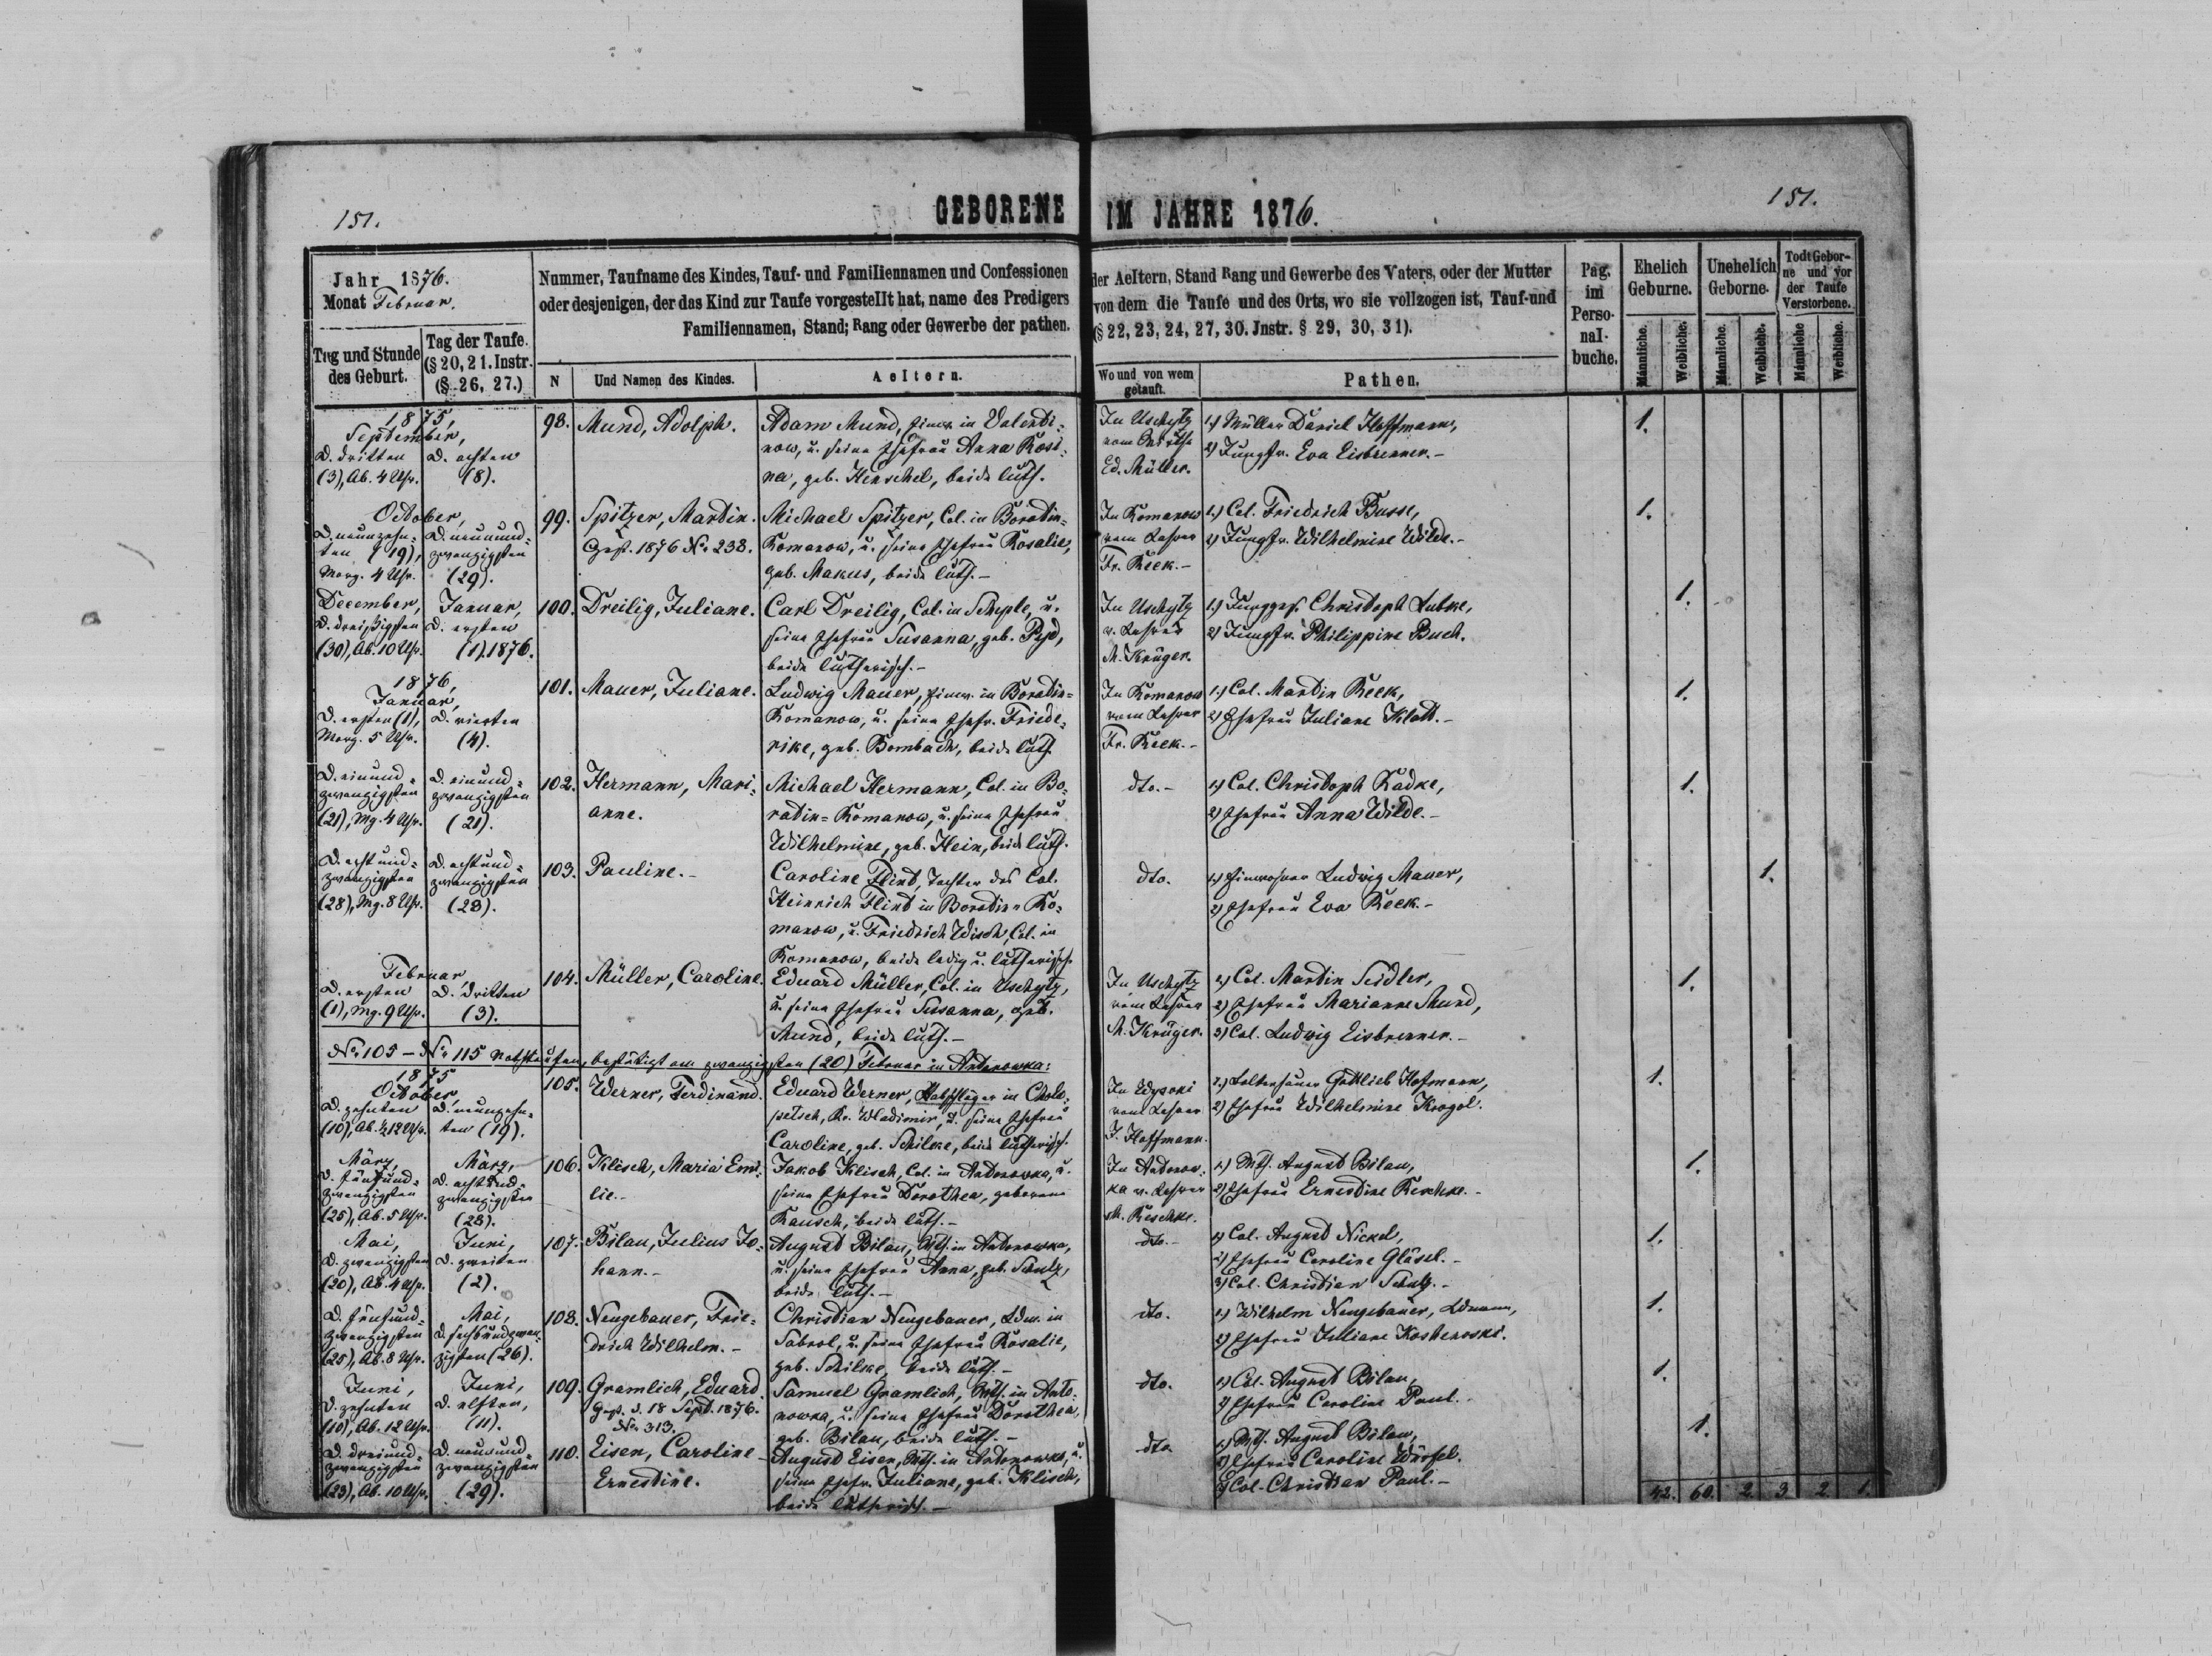 151.
GEBORENE IM JAHRE 1876.
151.
Jahr 1876.
Monat Februar.
Tag und Stunde
des Geburt.
Tag der Taufe.
(§ 20, 21. Instr.
(§ 26, 27.)
Nummer, Taufname des Kindes, Tauf- und Familiennamen und Confessionen der Aeltern, Stand Rang und Gewerbe des Vaters, oder der Mutter
oder desjenigen, der das Kind zur Taufe vorgestellt hat, name des Predigers von dem die Taufe und des Orts, wo sie vollzogen ist, Tauf-und
Familiennamen, Stand; Rang oder Gewerbe der pathen. (§ 22, 23, 24, 27, 30. Jnstr. § 29, 30, 31).
N
Und Namen des Kindes.
Aeltern.
Wo und von wem
getauft.
Pathen.
Pag.
im
Perso-
nal-
buche.
Ehelich
Geburne.
Unehelich
Geborne.
Todt Gebor-
ne und vor
der Taufe
Verstorbene.
Männliche.
Weibliche.
Männliche.
Weibliche.
Männliche
Weibliche.
1875,
September,
D. dritten
(3), Ab. 4 Uhr.
D. achten
(8).
98.
Mund, Adolph.
Adam Mund, Einw. in Valenti-
now, u. seine Ehefrau Anna Rosi-
na, geb. Henschel, beide luth.
In Uschytz
vom
Ed. Müller.
1.) Müller Daniel Hoffmann,
2) Jungfr. Eva Eisbrenner.-
1.
October,
D. neunzehn-
ten (19),
Morg. 4 Uhr.
D. neunund-
zwanzigsten
(29).
99.
Spitzer, Martin.
Gest. 1876 No. 238.
Michael Spitzer, Col. in Boratin-
Romanow, u. seine Ehefrau Rosalie,
geb. Makus, beide luth.-
In Romanow
vom Lehrer
Fr. Reek.-
1.) Col. Friedrich Busse,
2) Jungfr. Wilhelmine Wilde.-
1.
December,
D. dreißigsten
(30), Ab. 10 Uhr.
Januar,
D. ersten
(1). 1876.
100.
Dreilig, Juliane.
Carl Dreilig, Col. in Scheple, u.
seine Ehefrau Susanna, geb.
beide lutherisch.-
In Uschytz
v. Lehrer
M. Krüger.
1.) Jungges. Christoph Lubke,
2) Jungfr. Philippine Buch.
1.
1876,
Januar,
D. ersten (1),
Morg. 5 Uhr.
D. vierten
(4).
101.
Mauer, Juliane.
Ludwig Mauer, Einw. in Boratin-
Romanow, u. seine Ehefr. Friede-
rike, geb. Bombach, beide luth.
In Romanow
vom Lehrer
Fr. Reek.-
1.) Col. Martin Reek,
2) Ehefrau Juliane Klatt.-
1.
D. einund-
zwanzigsten
(21), Mg. 4 Uhr.
D. einund-
zwanzigsten
(21).
102.
Hermann, Mari-
anne.
Michael Hermann, Col. in Bo-
ratin-Romanow, u. seine Ehefrau
Wilhelmine, geb. Hein, beide luth.
dto.-
1) Col. Christoph Radke,
2) Ehefrau Anna Wilde.-
1.
D. achtund-
zwanzigsten
(28), Mg. 8 Uhr.
D. achtund-
zwanzigsten
(28).
103.
Pauline.-
Caroline Flint, Tochter des Col.
Heinrich Flint in Boratin-Ro-
manow, u. Friedrich Wisch, Col. in
Romanow, beide ledig u. lutherisch.
dto.
1.) Einwohner Ludwig Mauer,
2) Ehefrau Eva Reek.-
1.
Februar,
D. ersten
(1), Mg. 9 Uhr.
D. dritten
(3).
104.
Müller, Caroline.
Eduard Müller, Col. in Uschytz,
u. seine Ehefrau Susanna, geb.
Mund, beide luth.-
In Uschytz
vom Lehrer
M. Krüger.
1) Col. Martin Seidler,
2) Ehefrau Marianne Mund,
3) Col. Ludwig Eisbrenner.-
1.
No. 105 - No. 115 Nothtaufen, bestätigt am zwanzigsten (20) Februar in Antonowka:
1875
October,
D. zehnten
(10), Ab. ½12 Uhr.
D. neunzehn-
ten (19).
105.
Werner, Ferdinand.
Eduard Werner, in Cholo-
petsch, Kr. Wladimir, u. seine Ehefrau
Caroline, geb. Schilke, beide lutherisch.
In Wysoki
vom Lehrer
J. Hoffmann.
1.) Gottlieb Hofmann,
2) Ehefrau Wilhelmine Krogol.
1.
März,
D. fünfund-
zwanzigsten
(25), Ab. 5 Uhr.
März,
D. achtund-
zwanzigsten
(28).
106.
Klisch, Maria Emi-
lie.-
Jakob Klisch, Col. in Antonowka, u.
seine Ehefrau Dorothea, geborene
Rausch, beide luth.-
In Antonow-
ka v. Lehrer
M. Reschke.
1.) Wth. August Bilau,
2) Ehefrau Ernestine Reschke.-
1.
Mai,
D. zwanzigsten
(20), Ab. 4 Uhr.
Juni,
D. zweiten
(2).
107.
Bilau, Julius Jo-
hann.-
August Bilau, Wth. in Antonowka,
u. seine Ehefrau Anna, geb. Schulz,
beide luth.-
dto.-
1) Col. August Nickel,
2) Ehefrau Caroline Gläsel.-
3) Col. Christian Schulz.-
1.
D. fünfund-
zwanzigsten
(25), Ab. 8 Uhr.
Mai,
D. sechsundzwan-
zigsten (26).
108.
Neugebauer, Frie-
drich Wilhelm.-
Christian Neugebauer, Ldw. in
Sabrol, u. seine Ehefrau Rosalie,
geb. Schilke, beide luth.-
dto.
1.) Wilhelm Neugebauer,
2) Ehefrau Juliane Kosteroski.
1.
Juni,
D. zehnten
(10), Ab. 12 Uhr.
Juni,
D. elften,
(11).
109.
Gramlich, Eduard.
Gest. d. 18 Sept. 1876.
No. 313.
Samuel Gramlich, Wth. in Anto-
nowka, u. seine Ehefrau Dorothea,
geb. Bilau, beide luth.-
dto.
1) Col. August Bilau,
2) Ehefrau Caroline Paul.-
1.
D. dreiund-
zwanzigsten
(23), Ab. 10 Uhr.
D. neunund-
zwanzigsten
(29).
110.
Eisen, Caroline
Ernestine.
August Eisen, Wth. in Antonowka, u.
seine Ehefr. Juliane, geb. Klisch,
beide lutherisch.-
dto.
1.) Wth. August Bilau,
2) Ehefrau Caroline Würfel.
3) Col. Christian Paul.-
1.
42. 60. 2. 3. 2. 1.